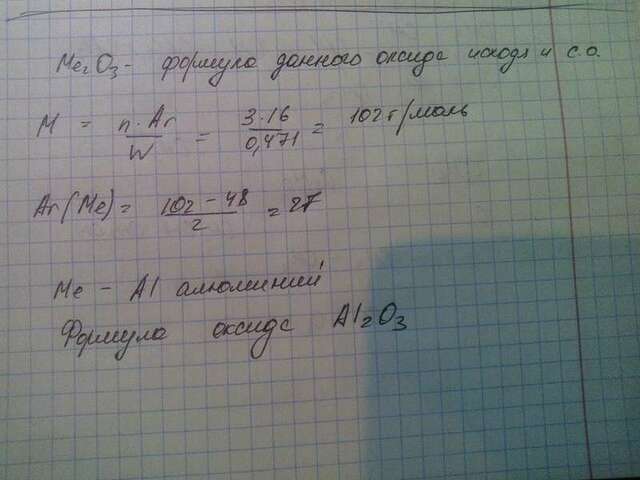 Me₂O₃ - формула данного оксида исходя и с.о.
M = n·Ar / W = 3·16 / 0,471 = 102 г/моль
Ar(Me) = 102 - 48 / 2 = 27
Me - Al алюминий
Формула оксида Al₂O₃